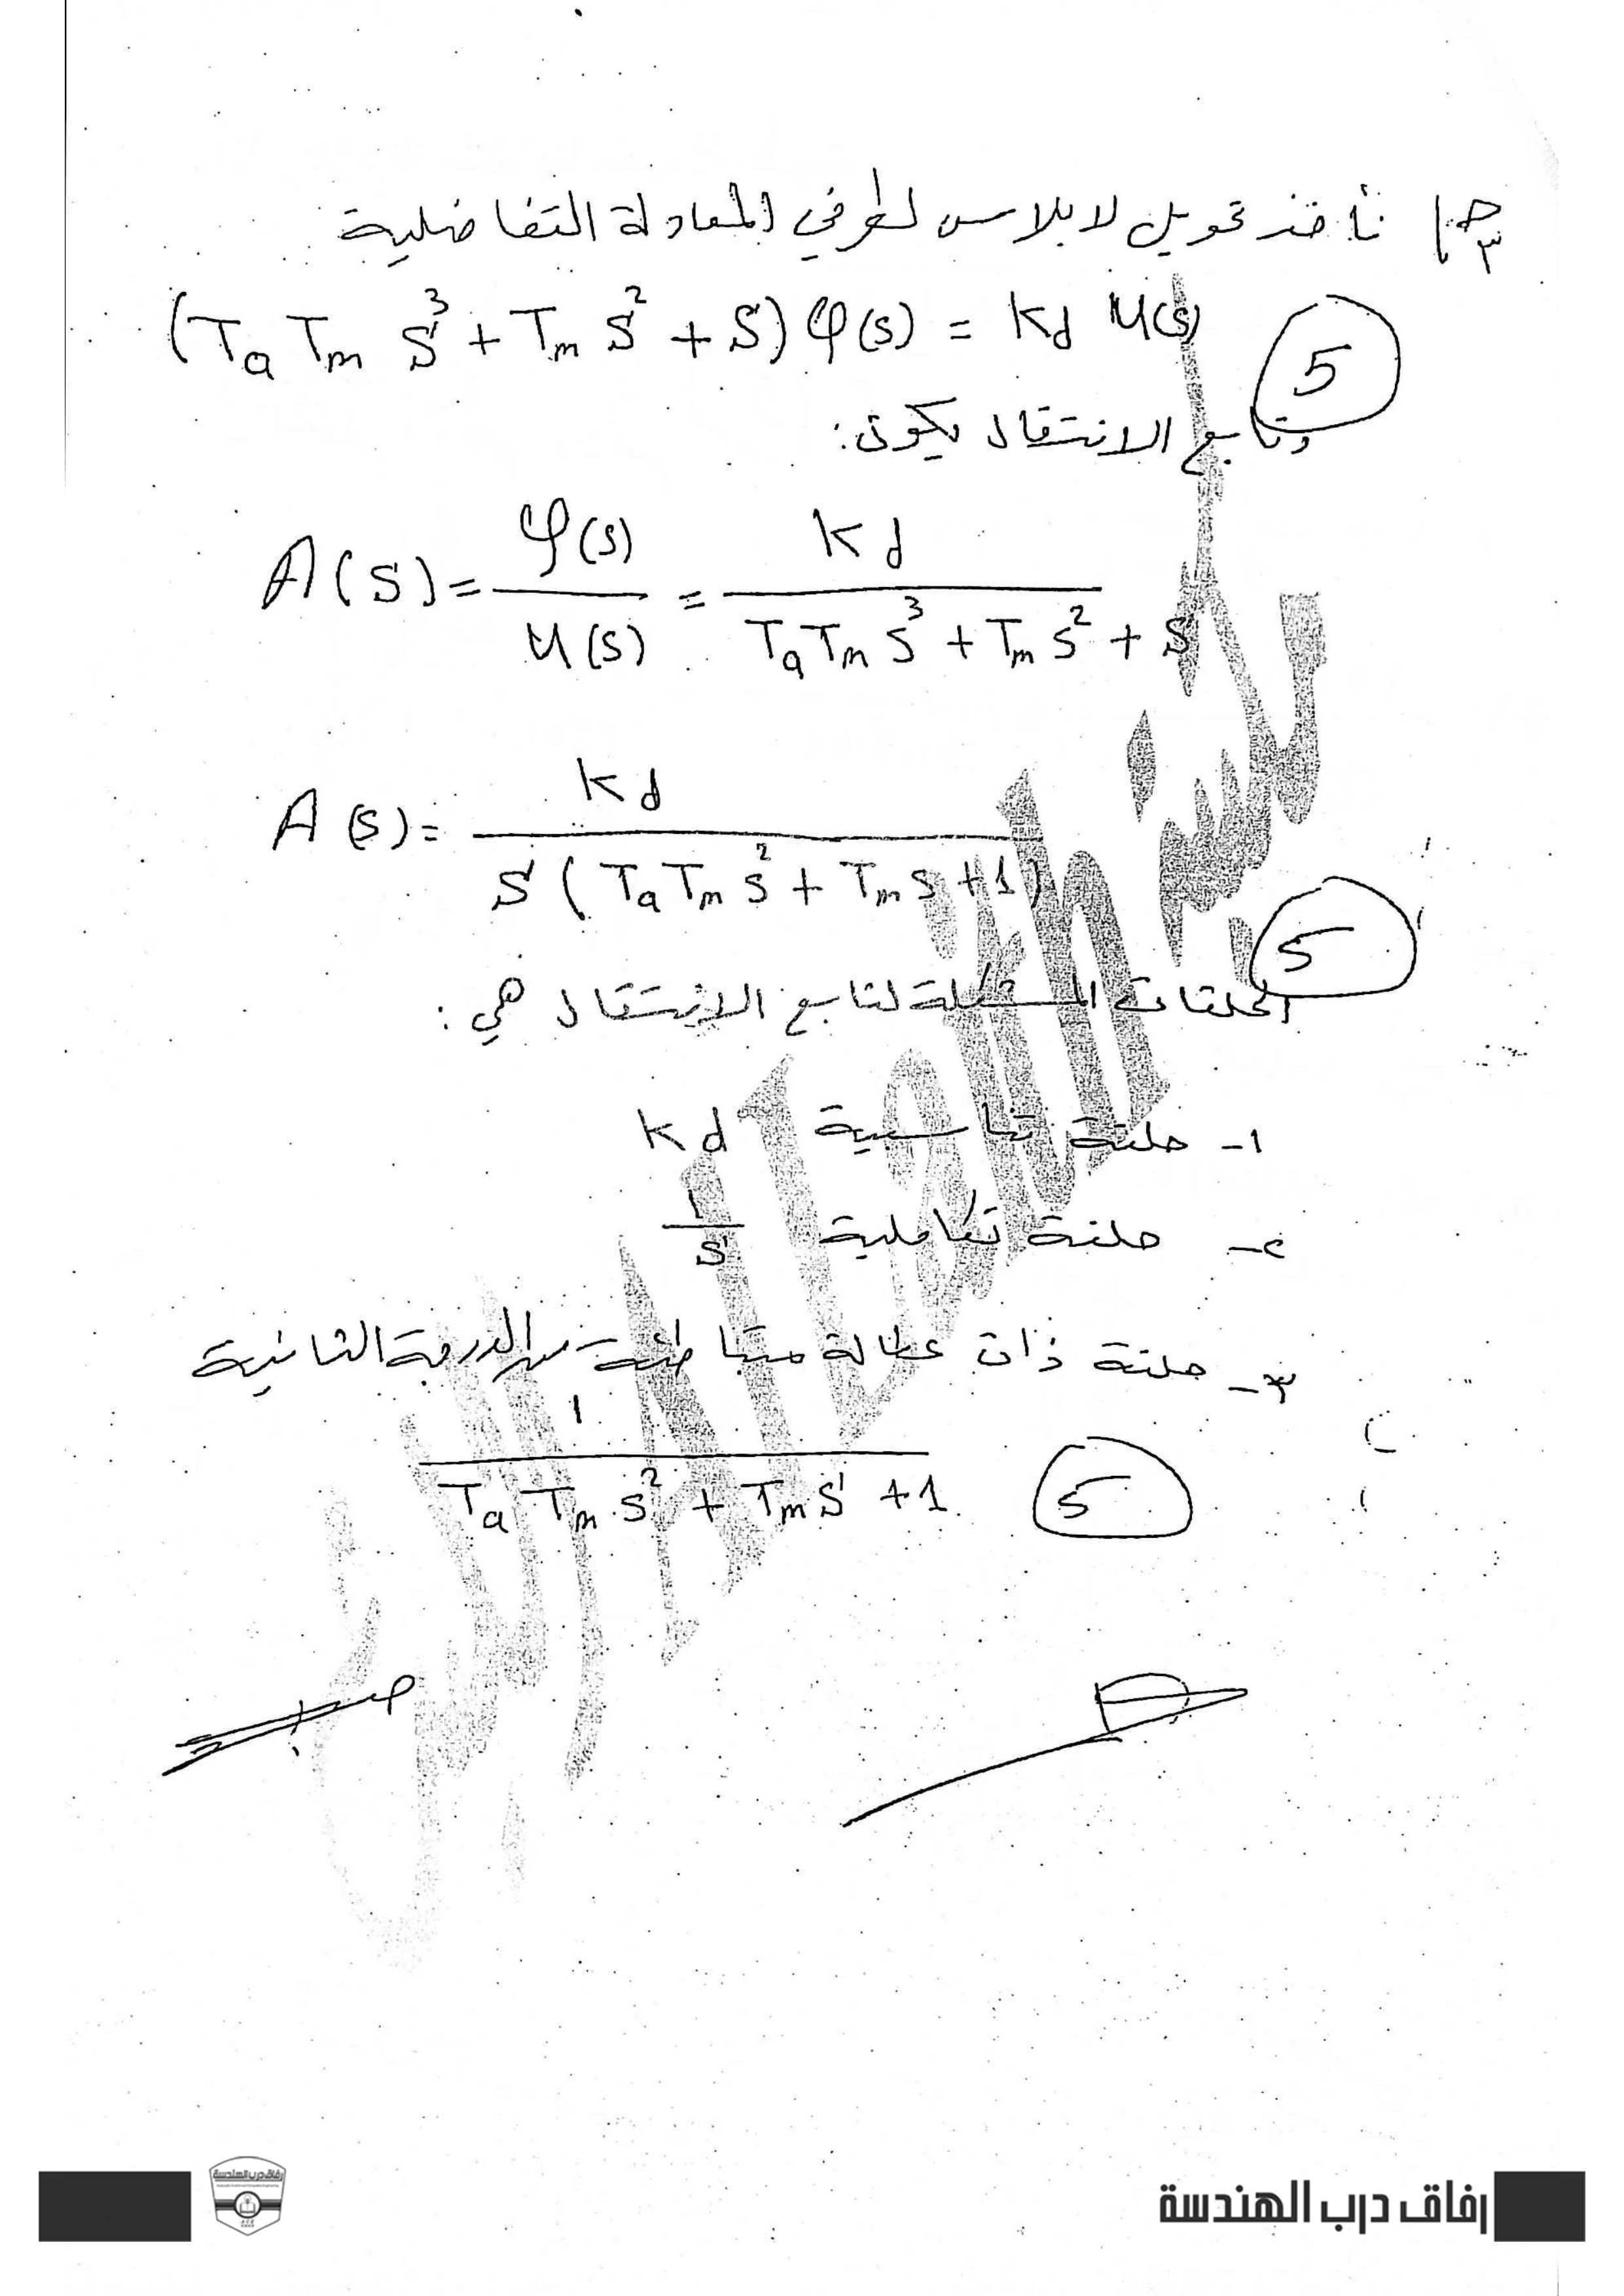 ج٣ نأخذ تحويل لابلاس لطرفي المعادلة التفاضلية
(Ta Tm S³ + Tm S² + S) φ(s) = Kd U(s)
5
وتابع الانتقال يكون:
A(S) = φ(s) / U(s) = Kd / (Ta Tm S³ + Tm S² + S)
A(S) = Kd / S (Ta Tm S² + Tm S + 1)
5
الحلقات المشكلة لتابع الانتقال هي:
١- حلقة تناسبية Kd
٢- حلقة تكاملية 1/S
٣- حلقة ذات عطالة متباطئة من الدرجة الثانية
1 / (Ta Tm S² + Tm S + 1)
5
رفاق درب الهندسة
رفاق درب الهندسة